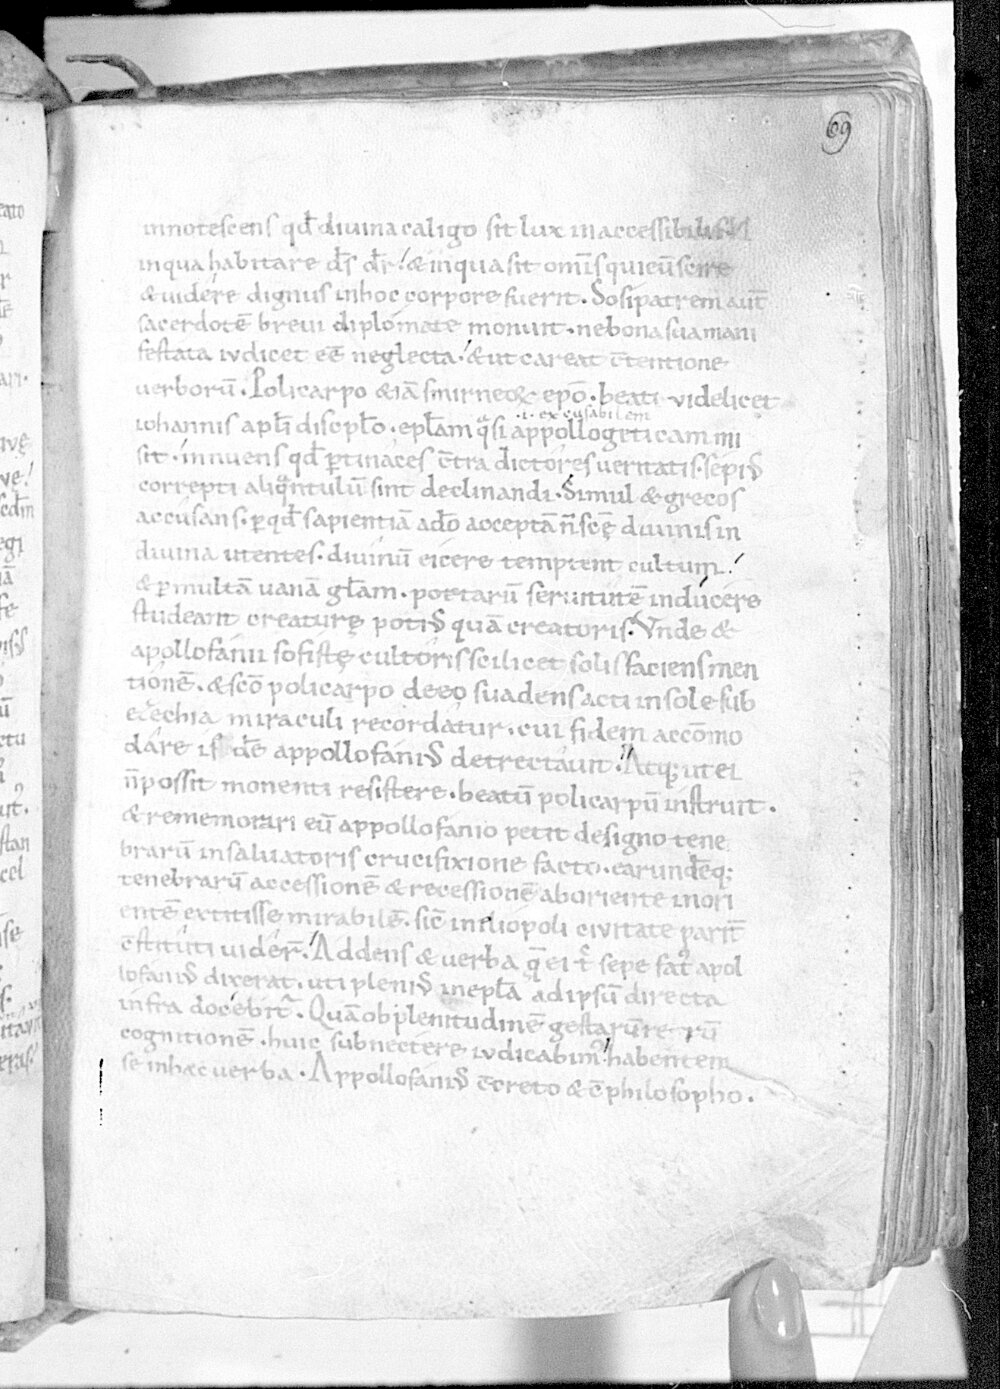 69
innotescens qđ diuina caligo sit lux inaccessibilis.
inqua habitare ds̄ dr̄! & inqua sit om̄is qui eū scire
& uidere dignus inhoc corpore fuerit. Sosipatrem aut̄
sacerdotē breui diplomate monuit. nebona sua mani
festata iudicet eē neglecta! & ut careat c̄tentione
uerborū. Policarpo &iā smirneoꝝ epō. beati videlicet
.i. excusabilem
iohannis apłi discipło. epłam qͣsi appollogeticam mi
sit. innuens qđ ꝑtinaces c̄tra dictores ueritatis. sepiꝰ
correpti aliqͣntulū sint declinandi. Simul & grecos
accusans. ꝑqđ sapientiā adō acceptā n̄ scę̄ diuinis in
diuina utentes. diuinū eicere temptent cultum!
& ꝑ multā uanā głam. poetarū inducere
studeant creaturę potiꝰ quā creatoris. Vnde &
apollofanii sofistę cultoris scilicet solis faciens men
tionē. & scō policarpo deeo suadens acti insole sub
ezechia miraculi recordatur. cui fidem accōmo
dare is de appollofaniꝰ detrectauit. Atq; ut ei
n̄ possit monenti resistere. beatū policarpū instruit.
& rememorari eū appollofanio petit designo tene
brarū insaluatoris crucifixione facto. earundēq;
tenebrarū accessionē & recessionē aboriente inori
entē extitisse mirabilē. sic̄ ineliopoli civitate parit̄
c̄stituti uider̄! Addens & uerba q̄ ei t̄ sepe fatꝰ apol
lofaniꝰ dixerat. uti pleniꝰ inepła adipsū directa
infra docebit̄. Quā ob plenitudinē gestarū rerū
cognitionē. huic subnectere iudicabimꝰ habentem
se inhaec uerba. Appollofaniꝰ c̄creto & c̄philosopho.